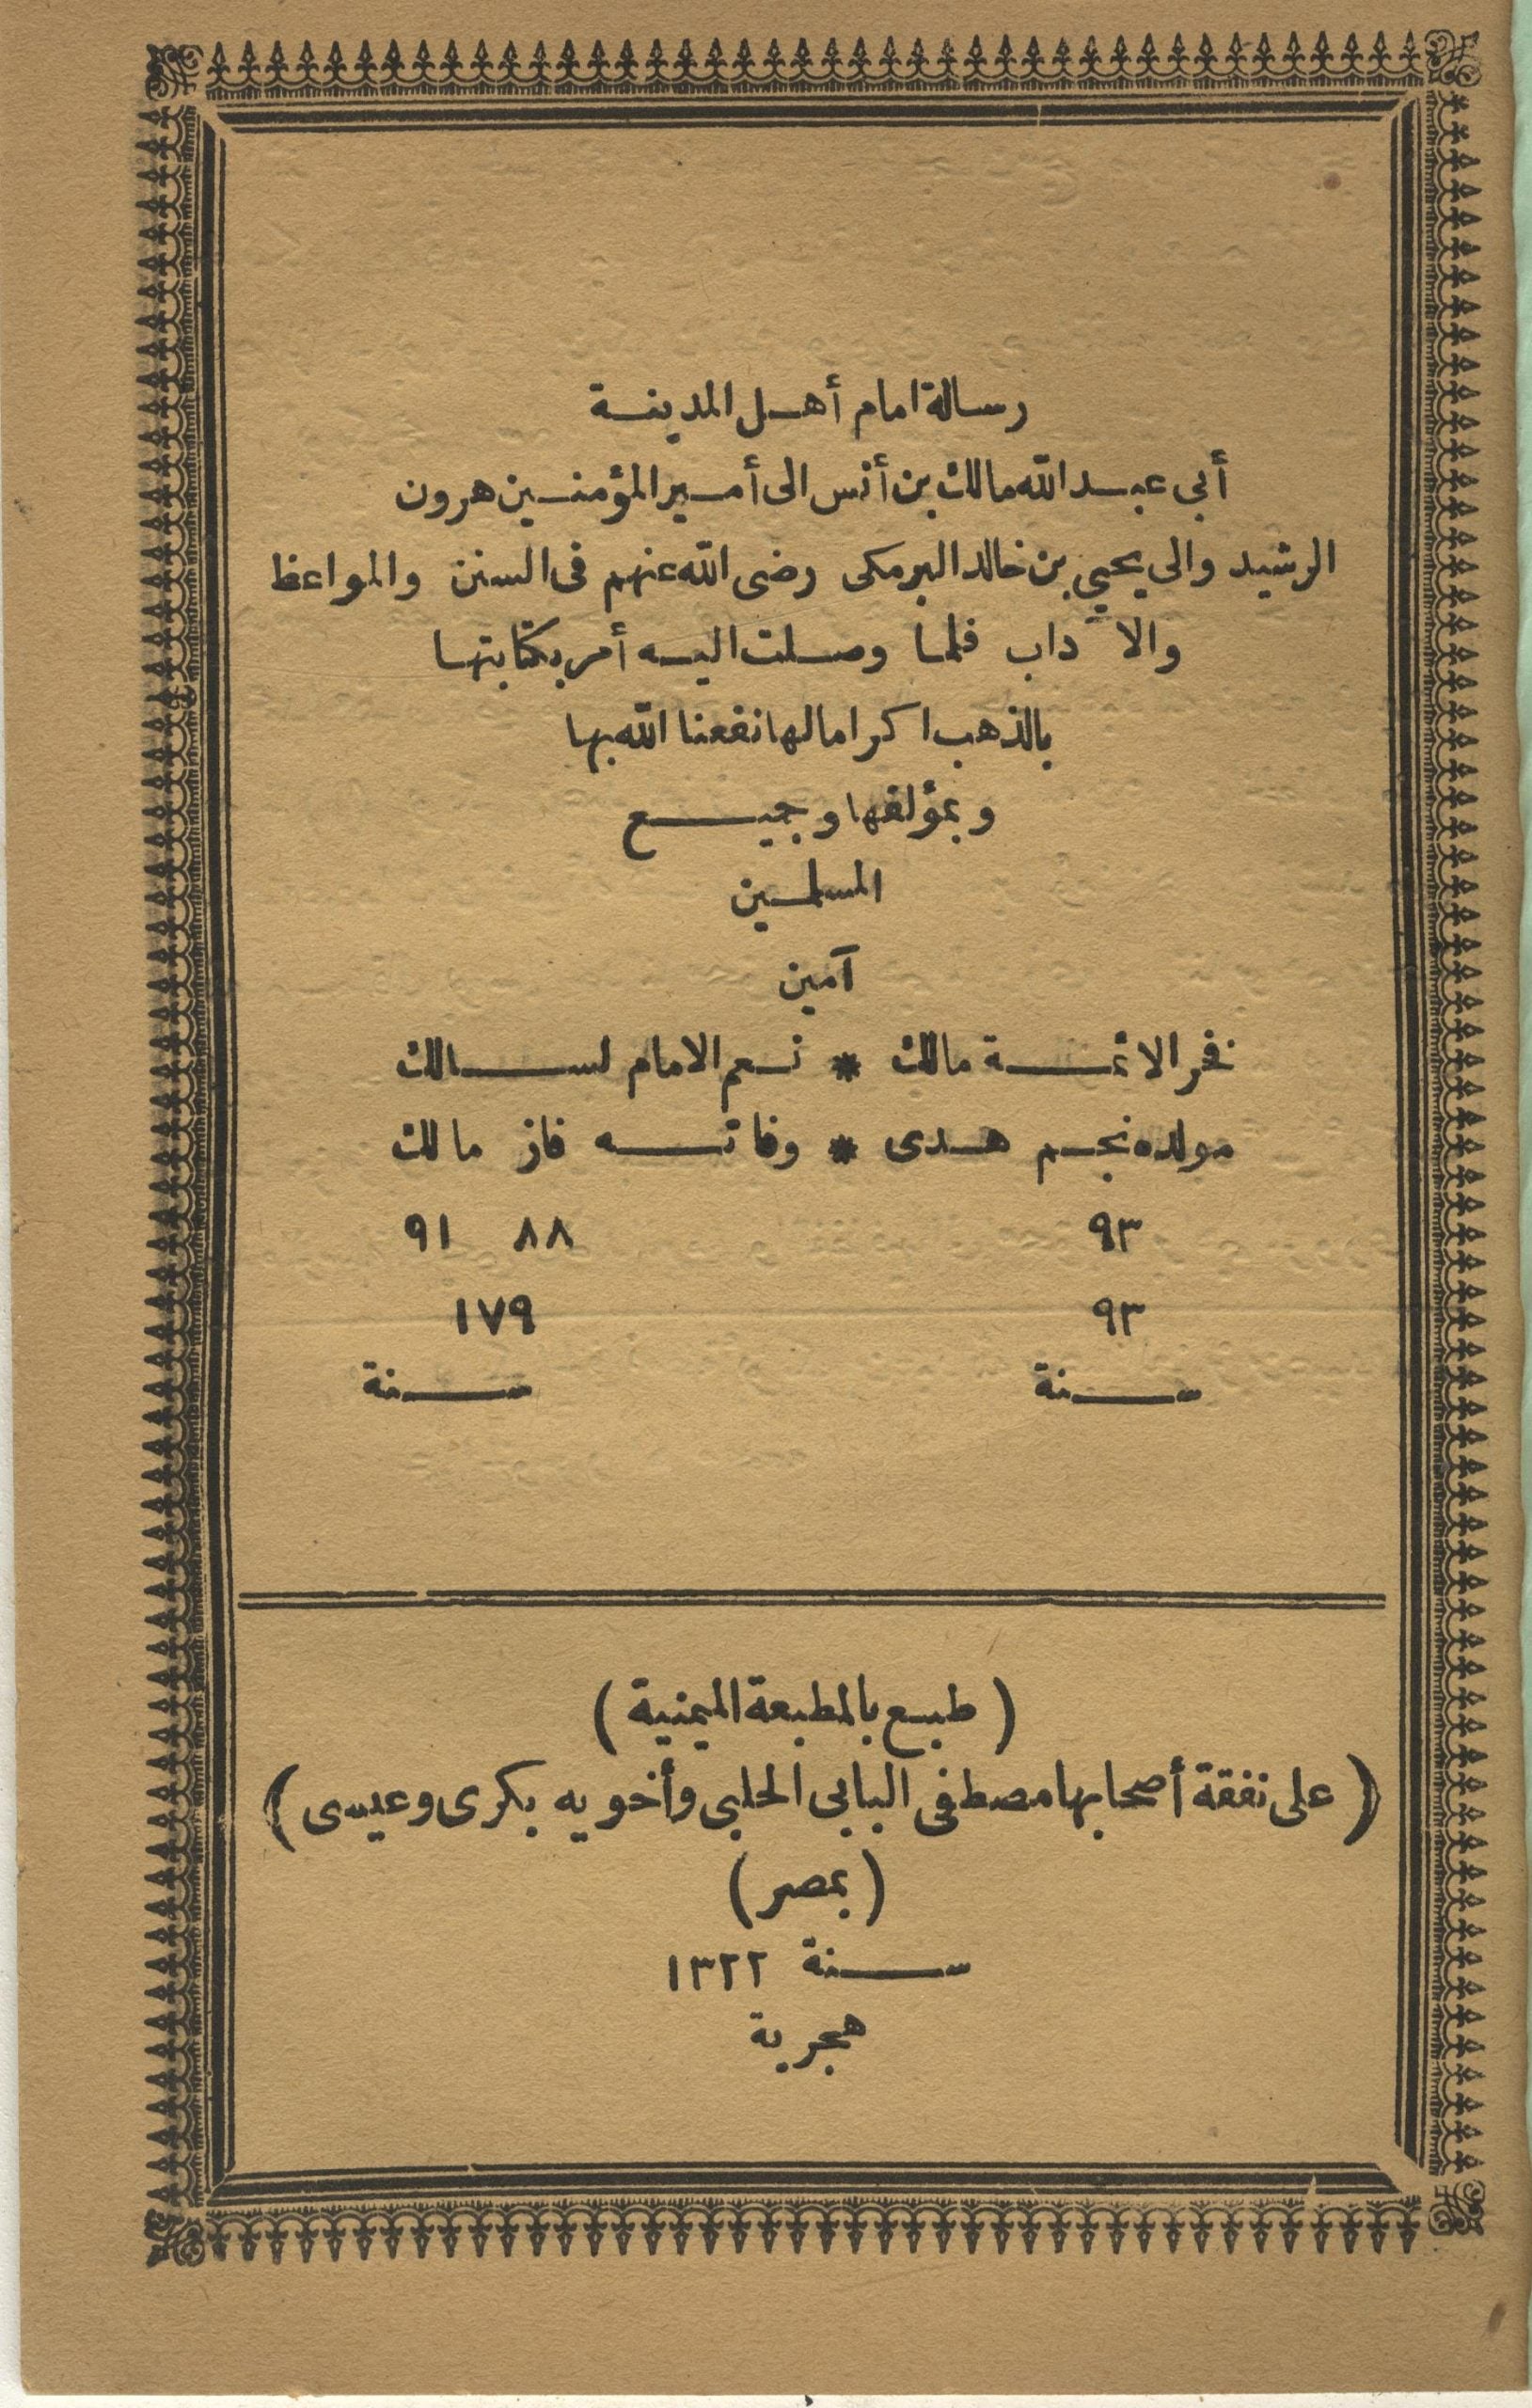 رسالة امام أهل المدينة
أبى عبد الله مالك بن أنس الى أمير المؤمنين هرون
الرشيد والى يحيى بن خالد البرمكى رضى الله عنهم فى السنن والمواعظ
والآداب فلما وصلت اليه أمر بكتابتها
بالذهب اكراما لها نفعنا الله بها
وبمؤلفها وجميع
المسلمين
آمين
فخر الائمة مالك * نعم الامام لسالك
مولده نجم هدى * وفاته فاز مالك
٩٣ ٨٨ ٩١
٩٣ ١٧٩
سنة سنة
(طبع بالمطبعة الميمنية)
(على نفقة أصحابها مصطفى البابى الحلبى وأخويه بكرى وعيسى)
(بمصر)
سنة ١٣٢٢
هجرية